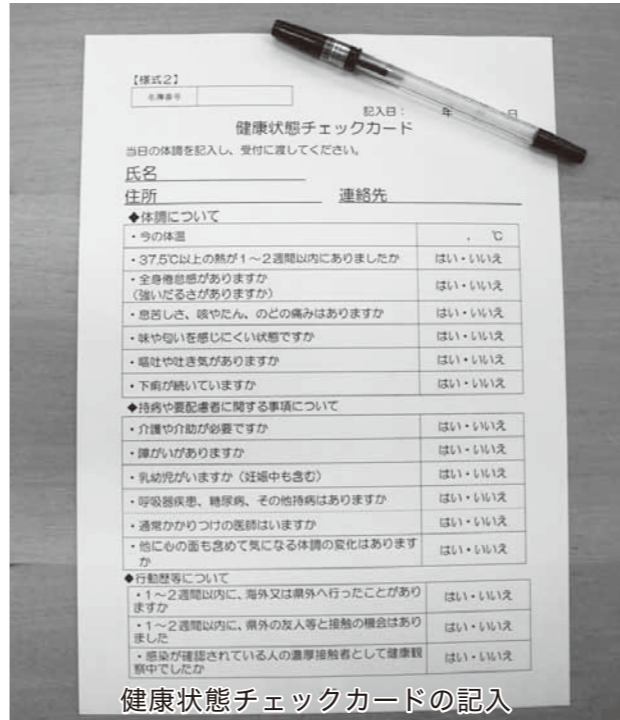 【様式2】
名簿番号
記入日： 年 日
健康状態チェックカード
当日の体調を記入し、受付に渡してください。
氏名
住所 連絡先
◆体調について
・今の体温 . ℃
・37.5℃以上の熱が1～2週間以内にありましたか はい・いいえ
・全身倦怠感がありますか
(強いだるさがありますか) はい・いいえ
・息苦しさ、咳やたん、のどの痛みはありますか はい・いいえ
・味や匂いを感じにくい状態ですか はい・いいえ
・嘔吐や吐き気がありますか はい・いいえ
・下痢が続いていますか はい・いいえ
◆持病や要配慮者に関する事項について
・介護や介助が必要ですか はい・いいえ
・障がいがありますか はい・いいえ
・乳幼児がいますか（妊娠中も含む） はい・いいえ
・呼吸器疾患、糖尿病、その他持病はありますか はい・いいえ
・通常かかりつけの医師はいますか はい・いいえ
・他に心の面も含めて気になる体調の変化はあります
か はい・いいえ
◆行動歴等について
・1～2週間以内に、海外又は県外へ行ったことがあり
ますか はい・いいえ
・1～2週間以内に、県外の友人等と接触の機会はあり
ました はい・いいえ
・感染が確認されている人の濃厚接触者として健康観
察中でしたか はい・いいえ
健康状態チェックカードの記入